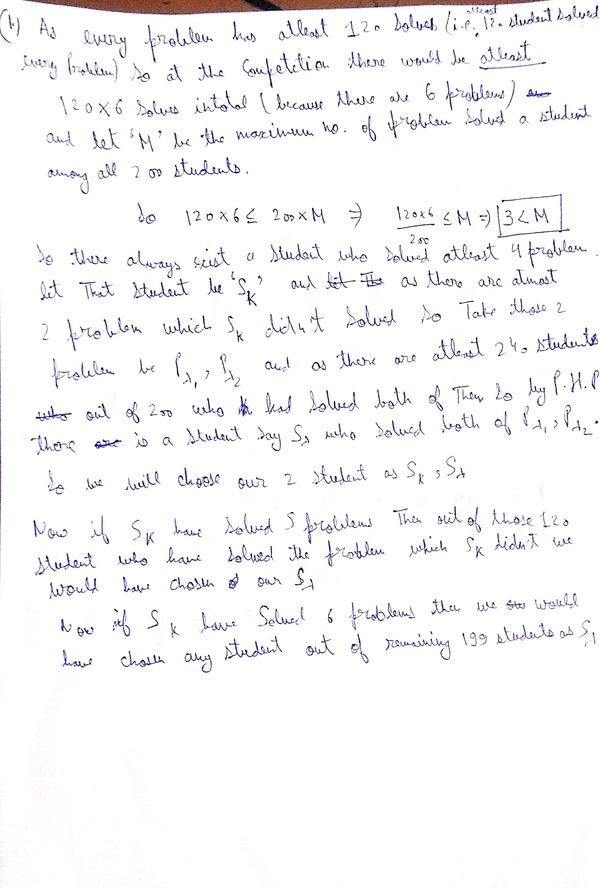 (b) As every problem has atleast 120 solves (i.e. atleast 120 student solved
every Problem) So at the Competetion there would be atleast
120×6 solves intotal (because there are 6 problems)
and let 'M' be the maximum no. of problem solved a student
among all 200 students.
So 120×6 ≤ 200×M ⇒ 120×6/200 ≤ M ⇒ 3<M
So there always exist a student who solved atleast 4 problem.
let That student be 'S_K' and as there are atmost
2 problem which S_K didn't solved So Take those 2
problem be P_λ1, P_λ2 and as there are atleast 240 students
out of 200 who had solved both of Them So by P.H.P
there is a student say S_λ who solved both of P_λ1, P_λ2.
So we will choose our 2 student as S_K, S_λ
Now if S_K have solved 5 problems Then out of those 120
student who have solved the problem which S_K didn't we
would have chosen our S_λ
Now if S_K have Solved 6 problems then we would
have chosen any student out of remaining 199 students as S_λ